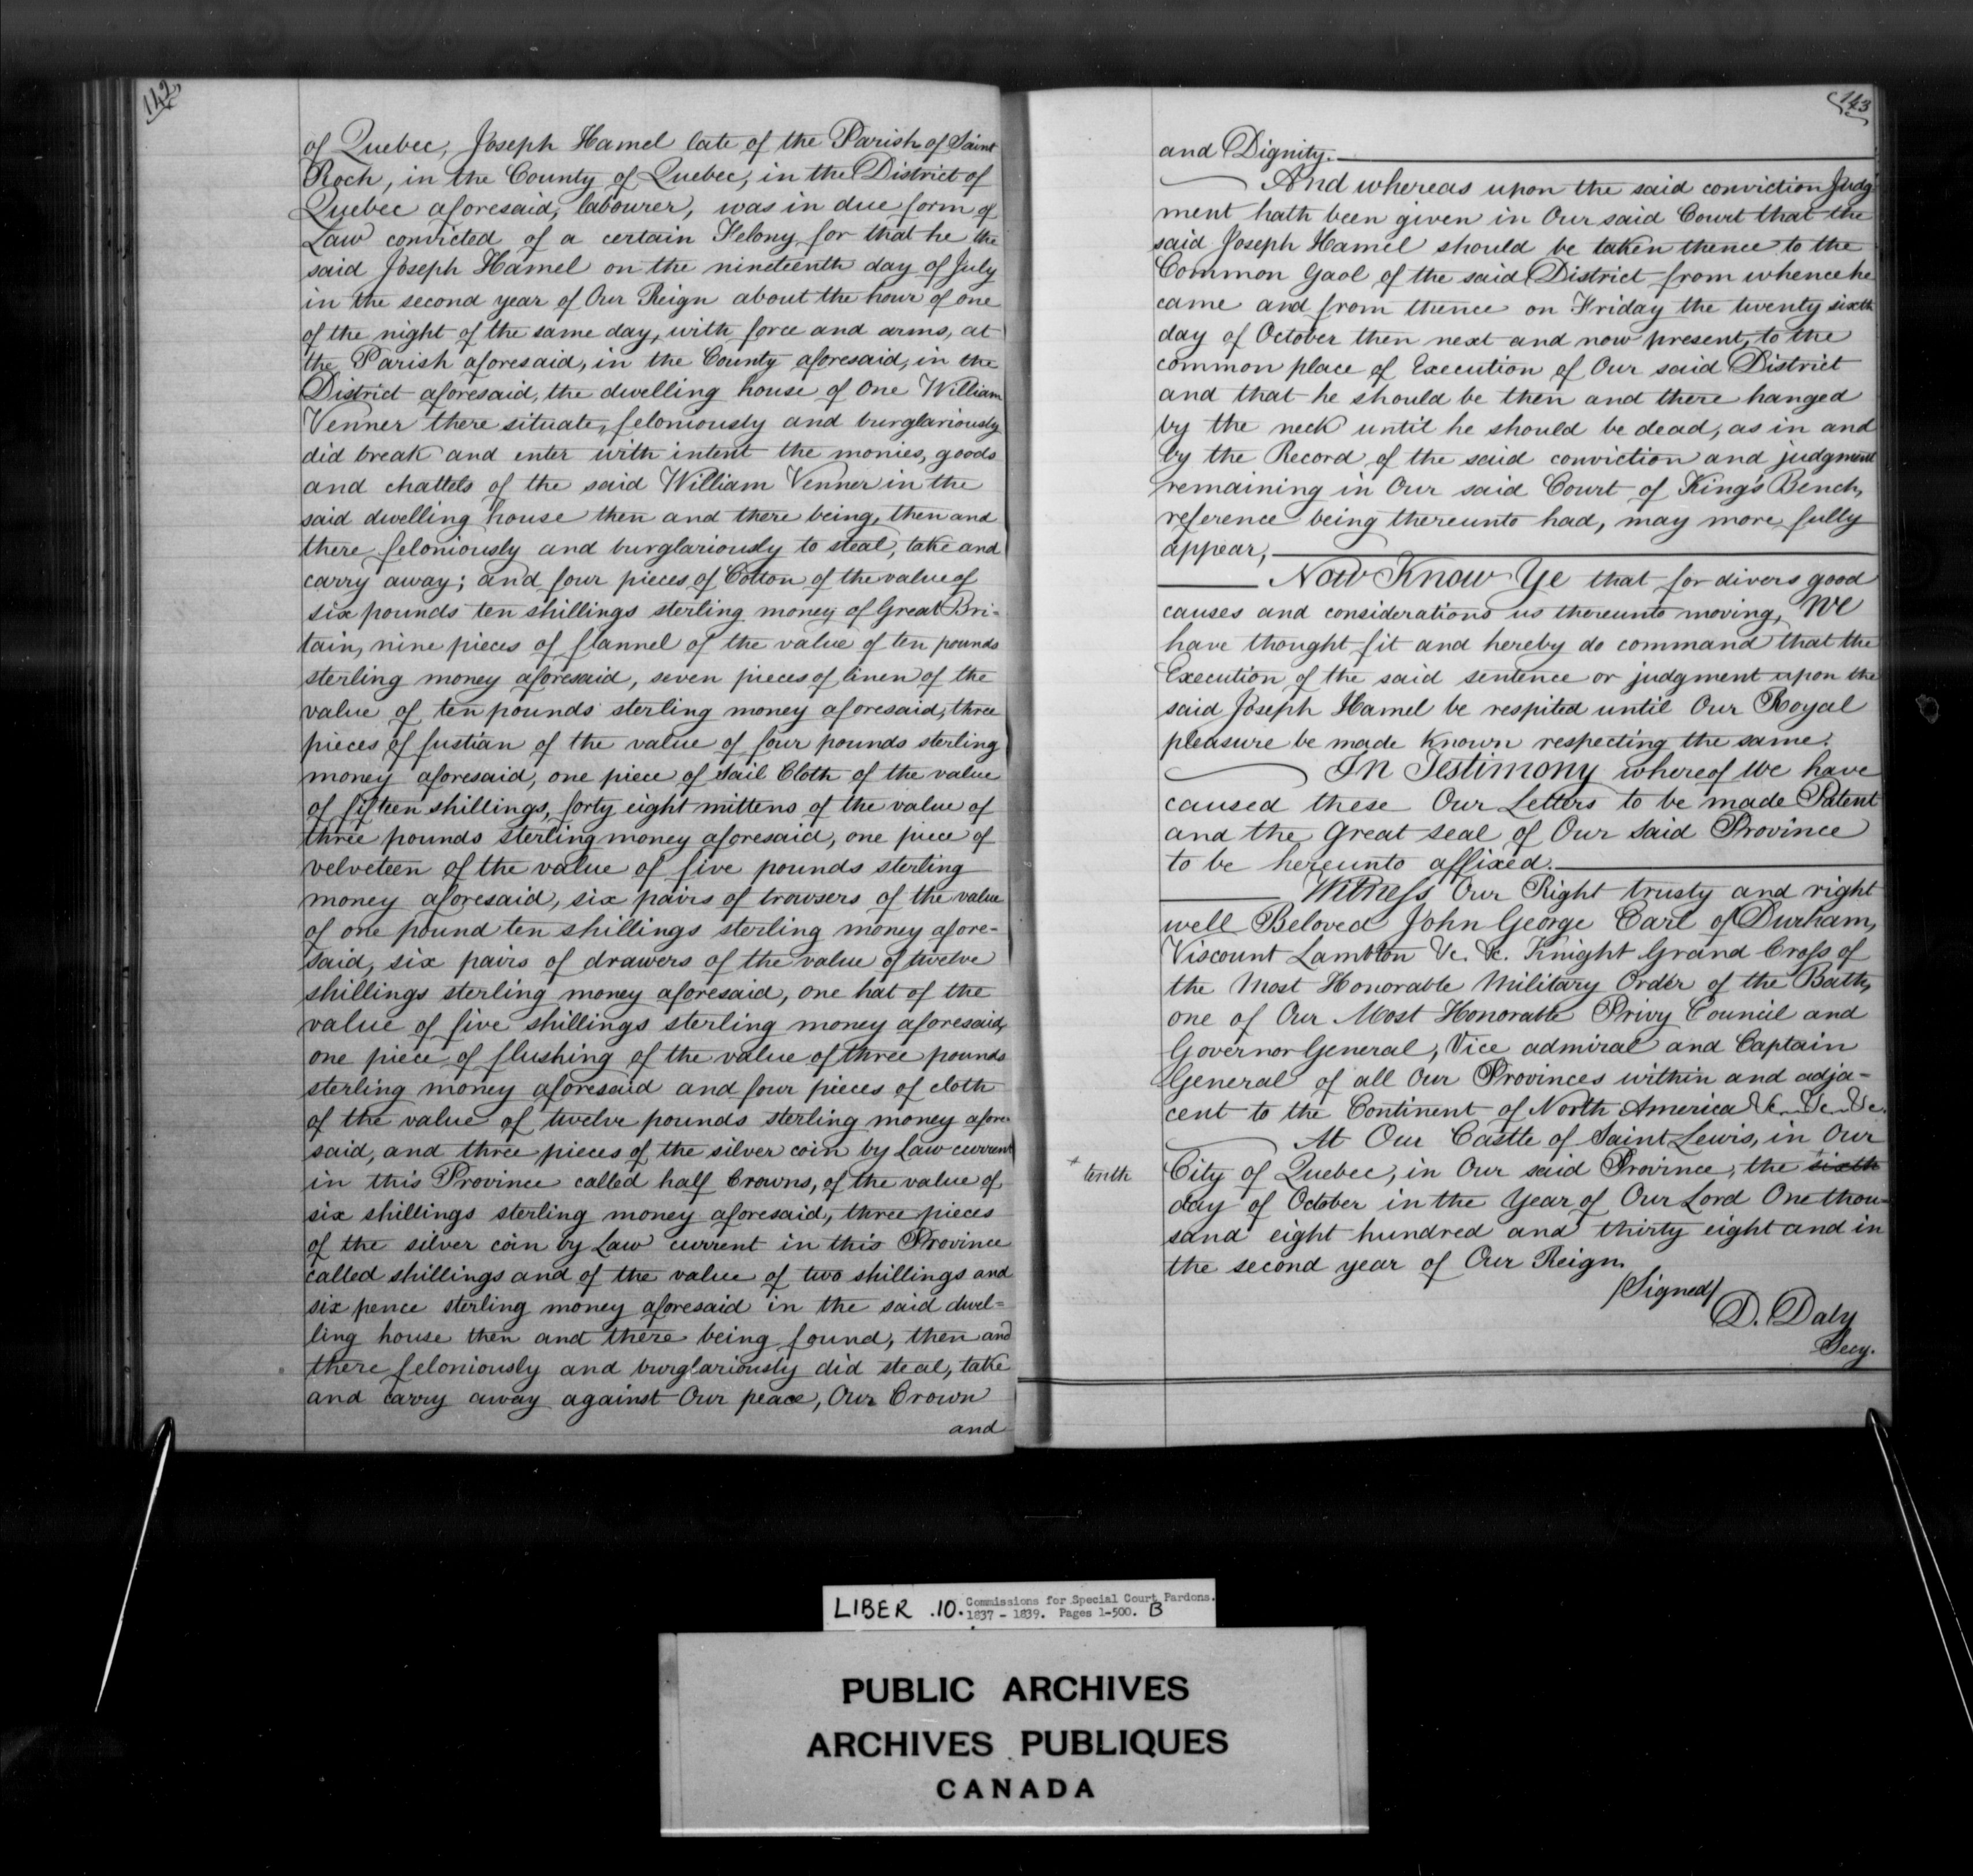 142
of Quebec, Joseph Hamel late of the Parish of Saint
Roch, in the County of Quebec, in the District of
Quebec aforesaid, labourer, was in due form of
Law convicted of a certain Felony for that he the
said Joseph Hamel on the nineteenth day of July
in the second year of Our Reign about the hour of one
of the night of the same day, with force and arms, at
the Parish aforesaid, in the County aforesaid, in the
District aforesaid, the dwelling house of one William
Venner there situate, feloniously and burglariously
did break and enter with intent the monies, goods
and chattels of the said William Venner in the
said dwelling house then and there being, then and
there feloniously and burglariously to steal, take and
carry away; and four pieces of Cotton of the value of
six pounds ten shillings sterling money of Great Bri-
tain, nine pieces of flannel of the value of ten pounds
sterling money aforesaid, seven pieces of linen of the
value of ten pounds sterling money aforesaid, three
pieces of fustian of the value of four pounds sterling
money aforesaid, one piece of Sail Cloth of the value
of fifteen shillings, forty eight mittens of the value of
three pounds sterling money aforesaid, one piece of
velveteen of the value of five pounds sterling
money aforesaid, six pairs of trowsers of the value
of one pound ten shillings sterling money afore-
said, six pairs of drawers of the value of twelve
shillings sterling money aforesaid, one hat of the
value of five shillings sterling money aforesaid,
one piece of flushing of the value of three pounds
sterling money aforesaid and four pieces of cloth
of the value of twelve pounds sterling money afore-
said, and three pieces of the silver coin by Law current
in this Province called half Crowns, of the value of
six shillings sterling money aforesaid, three pieces
of the silver coin by Law current in this Province
called shillings and of the value of two shillings and
six pence sterling money aforesaid in the said dwel=
ling house then and there being found, then and
there feloniously and burglariously did steal, take
and carry away against Our peace, Our Crown
and
143
and Dignity.
And whereas upon the said conviction Judg
ment hath been given in Our said Court that the
said Joseph Hamel should be taken thence to the
Common Gaol of the said District from whence he
came and from thence on Friday the twenty sixth
day of October then next and now present, to the
common place of Execution of Our said District
and that he should be then and there hanged
by the neck until he should be dead, as in and
by the Record of the said conviction and judgment
remaining in Our said Court of King's Bench,
reference being thereunto had, may more fully
appear,
Now Know Ye that for divers good
causes and considerations us thereunto moving, We
have thought fit and hereby do command that the
Execution of the said sentence or judgment upon the
said Joseph Hamel be respited until Our Royal
pleasure be made known respecting the same.
In Testimony whereof We have
caused these Our Letters to be made Patent
and the Great Seal of Our said Province
to be hereunto affixed.
Witness Our Right trusty and right
well Beloved John George Earl of Durham,
Viscount Lambton &c. &c. Knight Grand Cross of
the Most Honorable Military Order of the Bath,
one of Our Most Honorable Privy Council and
Governor General, Vice admiral and Captain
General of all Our Provinces within and adja-
cent to the Continent of North America &c. &c. &c.
At Our Castle of Saint Lewis, in Our
City of Quebec, in Our said Province, the sixth
+ tenth
day of October in the Year of Our Lord One thou-
sand eight hundred and thirty eight and in
the second year of Our Reign.
(Signed)
D. Daly
Secy.
LIBER .10. Commissions for Special Court Pardons.
1837 - 1839. Pages 1-500. B
PUBLIC ARCHIVES
ARCHIVES PUBLIQUES
CANADA